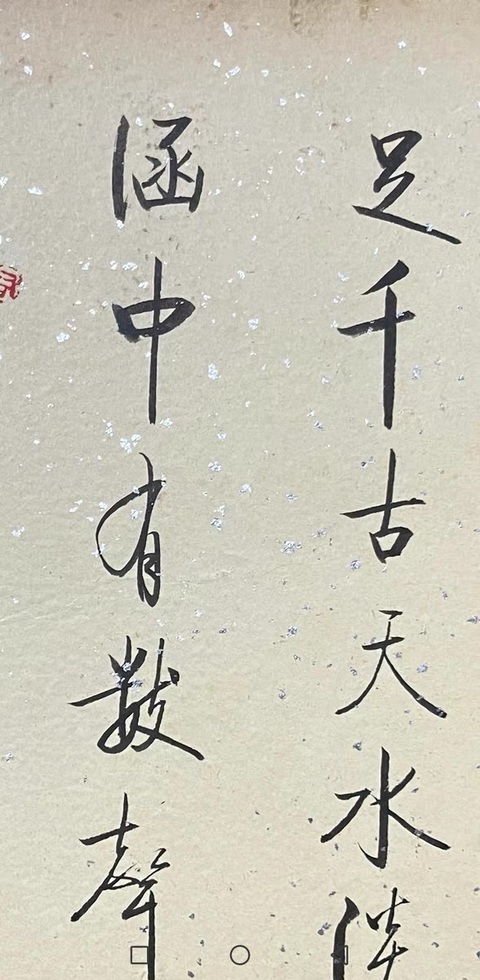 足千古天水
涵中有數聲